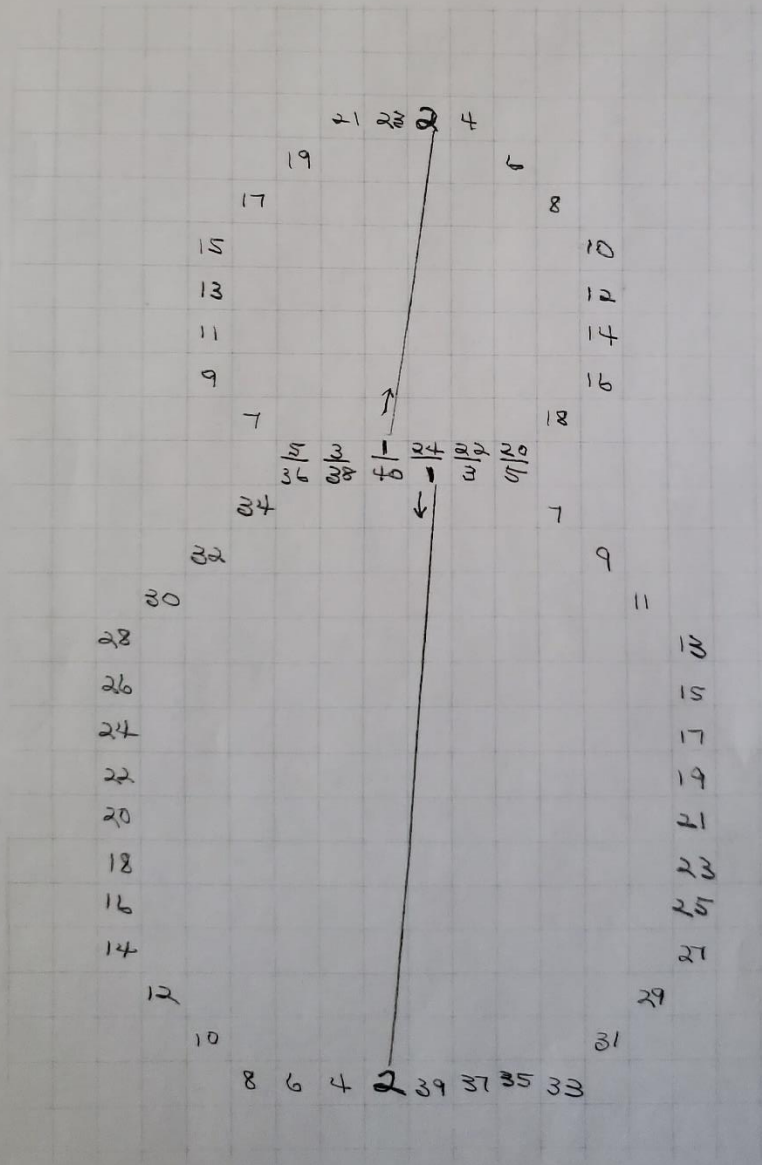 21 23 2 4
19 6
17 8
15 10
13 12
11 14
9 16
7 18
5/36 3/38 1/40 24/1 22/3 20/5
34 7
32 9
30 11
28 13
26 15
24 17
22 19
20 21
18 23
16 25
14 27
12 29
10 31
8 6 4 2 39 37 35 33